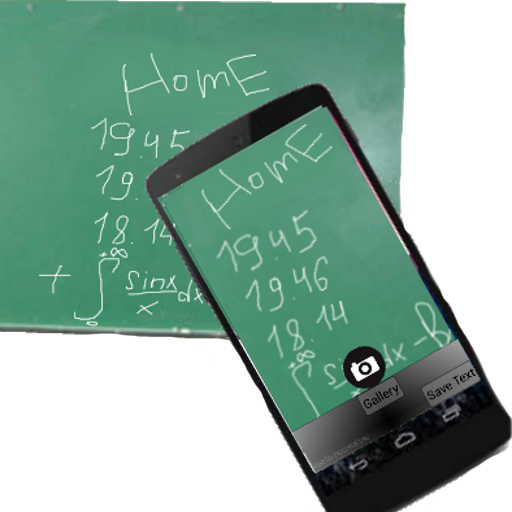 HomE
19.45
19.
18.14
+ ∫ +∞ 0 sinx/x dx
HomE
19.45
19.46
18.14
+∞ ∫ s dx - B
Gallery
Save Text